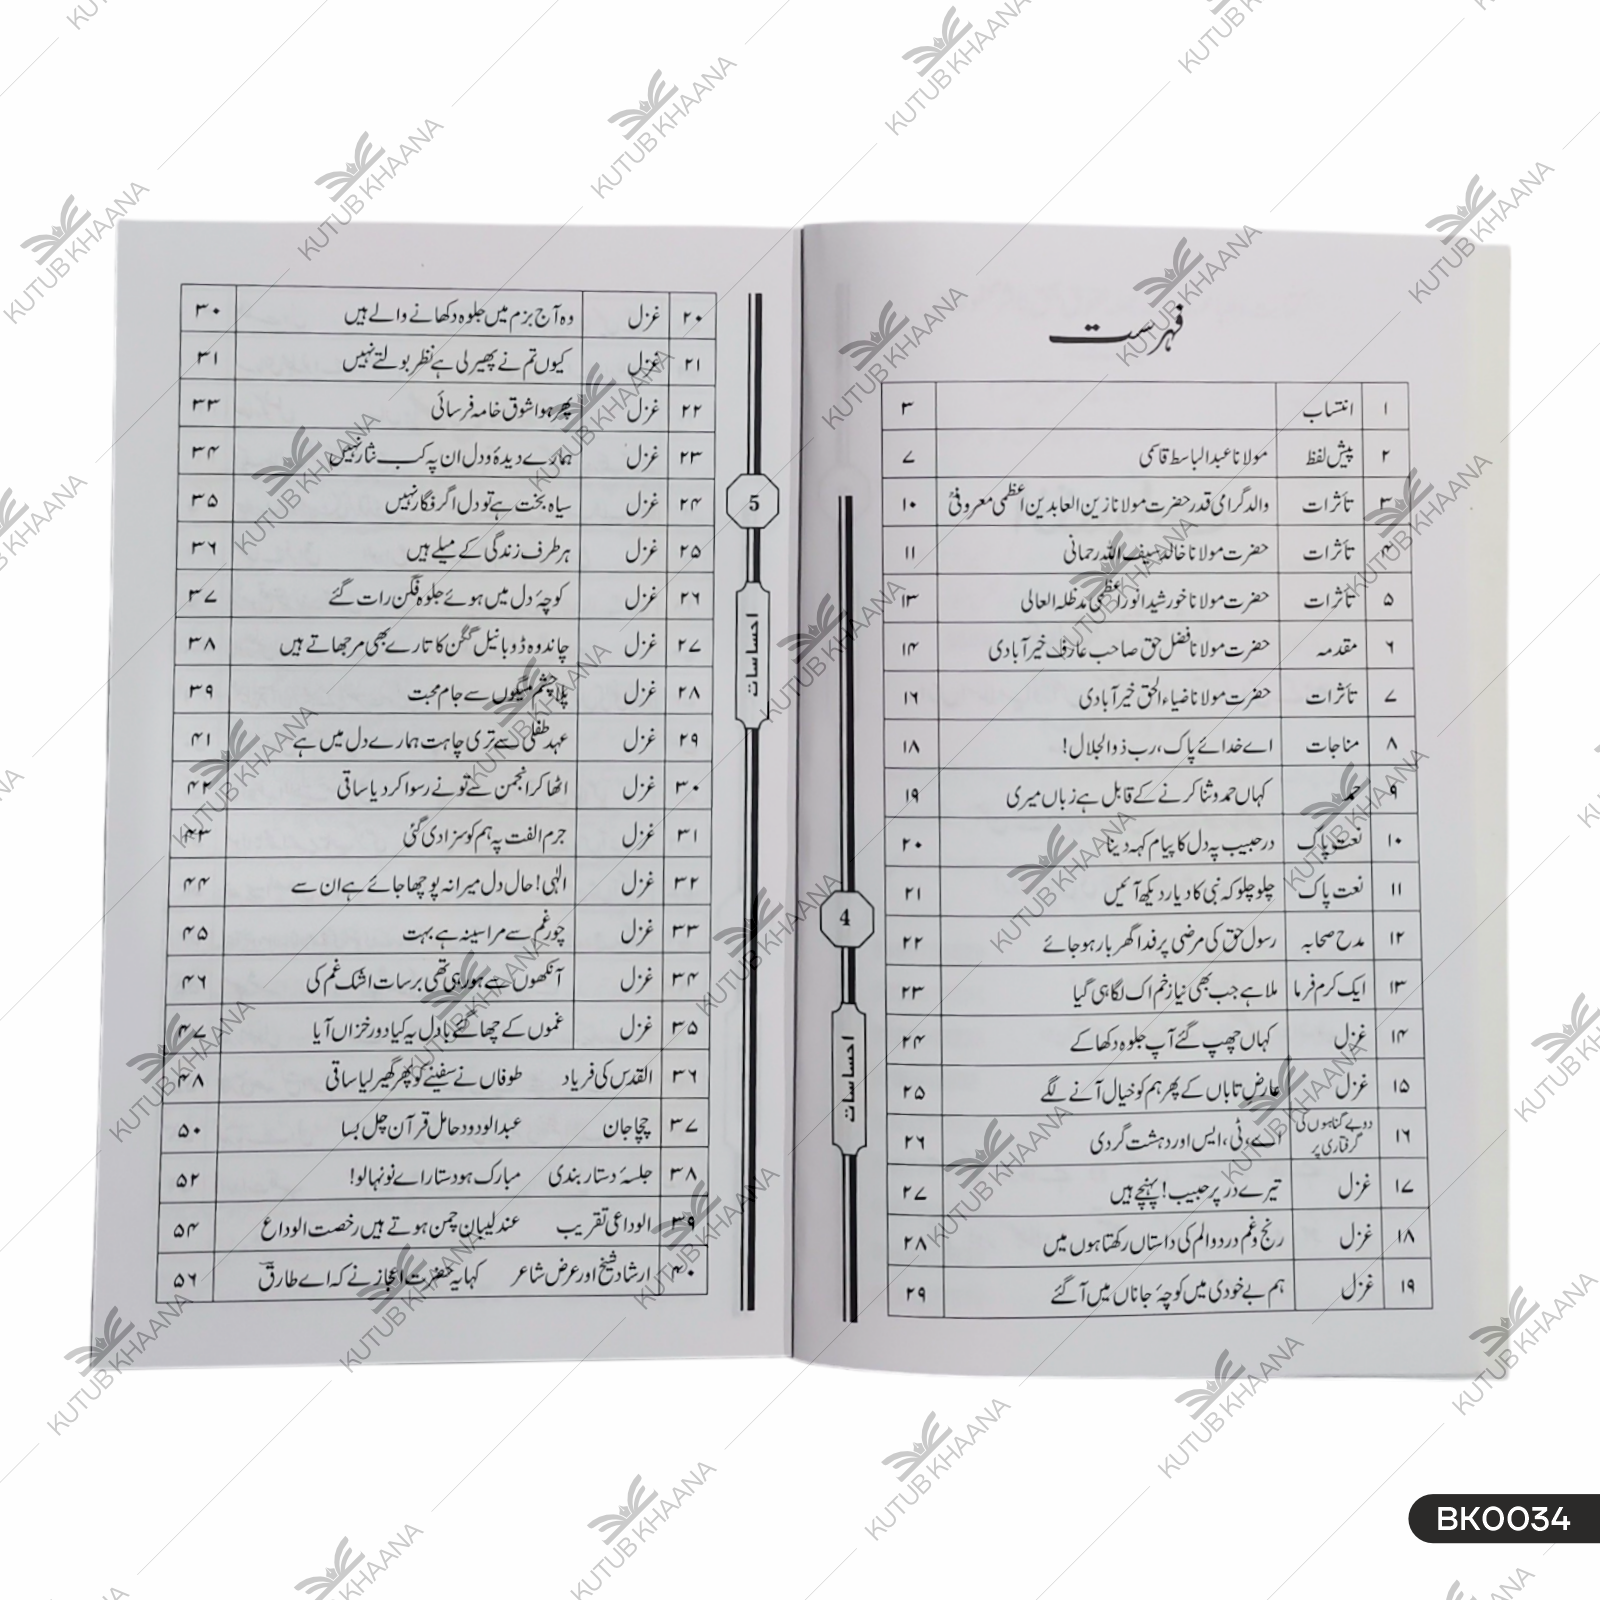 فہرست
۱ انتساب ۳
۲ پیش لفظ مولانا عبدالباسط قاسمی ۷
۳ تأثرات والد گرامی قدر حضرت مولانا زین العابدین اعظمی معروفیؒ ۱۰
۴ تأثرات حضرت مولانا خالد سیف اللہ رحمانی ۱۱
۵ تأثرات حضرت مولانا خورشید انور اعظمی مدظلہ العالی ۱۳
۶ مقدمہ حضرت مولانا فضل حق صاحب عارف خیرآبادی ۱۴
۷ تأثرات حضرت مولانا ضیاء الحق خیرآبادی ۱۶
۸ مناجات اے خدائے پاک، رب ذوالجلال! ۱۸
۹ حمد کہاں حمد و ثنا کرنے کے قابل ہے زباں میری ۱۹
۱۰ نعت پاک در حبیب پہ دل کا پیام کہہ دینا ۲۰
۱۱ نعت پاک چلو چلو کہ نبی کا دیار دیکھ آئیں ۲۱
۱۲ مدح صحابہ رسول حق کی مرضی پر فدا گھر بار ہو جائے ۲۲
۱۳ ایک کرم فرما ملا ہے جب بھی نیا زخم اک لگا ہی گیا ۲۳
۱۴ غزل کہاں چھپ گئے آپ جلوہ دکھا کے ۲۴
۱۵ غزل عارض تاباں کے پھر ہم کو خیال آنے لگے ۲۵
۱۶ دو بے گناہوں کی گرفتاری پر اے، ٹی، ایس اور دہشت گردی ۲۶
۱۷ غزل تیرے در پر حبیب! پہنچے ہیں ۲۷
۱۸ غزل رنج و غم درد و الم کی داستاں رکھتا ہوں میں ۲۸
۱۹ غزل ہم بے خودی میں کوچۂ جاناں میں آ گئے ۲۹
4
احساسات
۲۰ غزل وہ آج بزم میں جلوہ دکھانے والے ہیں ۳۰
۲۱ غزل کیوں تم نے پھیر لی ہے نظر بولتے نہیں ۳۱
۲۲ غزل پھر ہوا شوق خامہ فرسائی ۳۳
۲۳ غزل ہمارے دیدۂ و دل ان پہ کب نثار نہیں ۳۴
۲۴ غزل سیاہ بخت ہے تو دل اگر فگار نہیں ۳۵
۲۵ غزل ہر طرف زندگی کے میلے ہیں ۳۶
۲۶ غزل کوچۂ دل میں ہوئے جلوہ فگن رات گئے ۳۷
۲۷ غزل چاند وہ ڈوبا نیل گگن کا تارے بھی مرجھاتے ہیں ۳۸
۲۸ غزل پلا چشم میگوں سے جام محبت ۳۹
۲۹ غزل عہد طفلی سے تری چاہت ہمارے دل میں ہے ۴۱
۳۰ غزل اٹھا کر انجمن سے تو نے رسوا کر دیا ساقی ۴۲
۳۱ غزل جرم الفت پہ ہم کو سزا دی گئی ۴۳
۳۲ غزل الٰہی! حال دل میرا نہ پوچھا جائے ہے ان سے ۴۴
۳۳ غزل چور غم سے مرا سینہ ہے بہت ۴۵
۳۴ غزل آنکھوں سے ہو رہی تھی برسات اشک غم کی ۴۶
۳۵ غزل غموں کے چھا گئے بادل یہ کیا دور خزاں آیا ۴۷
۳۶ القدس کی فریاد طوفاں نے سفینے کو پھر گھیر لیا ساقی ۴۸
۳۷ چچا جان عبدالودود حامل قرآن چل بسا ۵۰
۳۸ جلسۂ دستار بندی مبارک ہو دستار اے نونہالو! ۵۲
۳۹ الوداعی تقریب عندلیبان چمن ہوتے ہیں رخصت الوداع ۵۴
۴۰ ارشاد شیخ اور عرض شاعر کہا یہ حضرت اعجاز نے کہ اے طارق ۵۶
5
احساسات
BK0034
KUTUB KHAANA